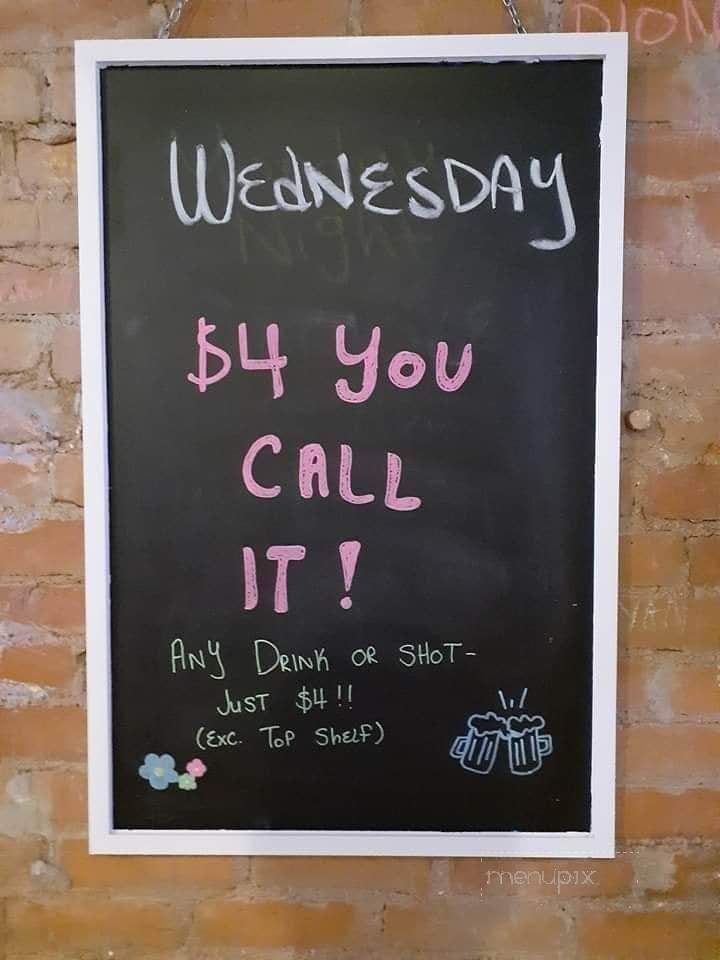 DION
WEdNESDAY
Night
$4 YOU
CALL
IT!
ANY DRINK OR SHOT-
JUST $4!!
(Exc. TOP Shelf)
menupix